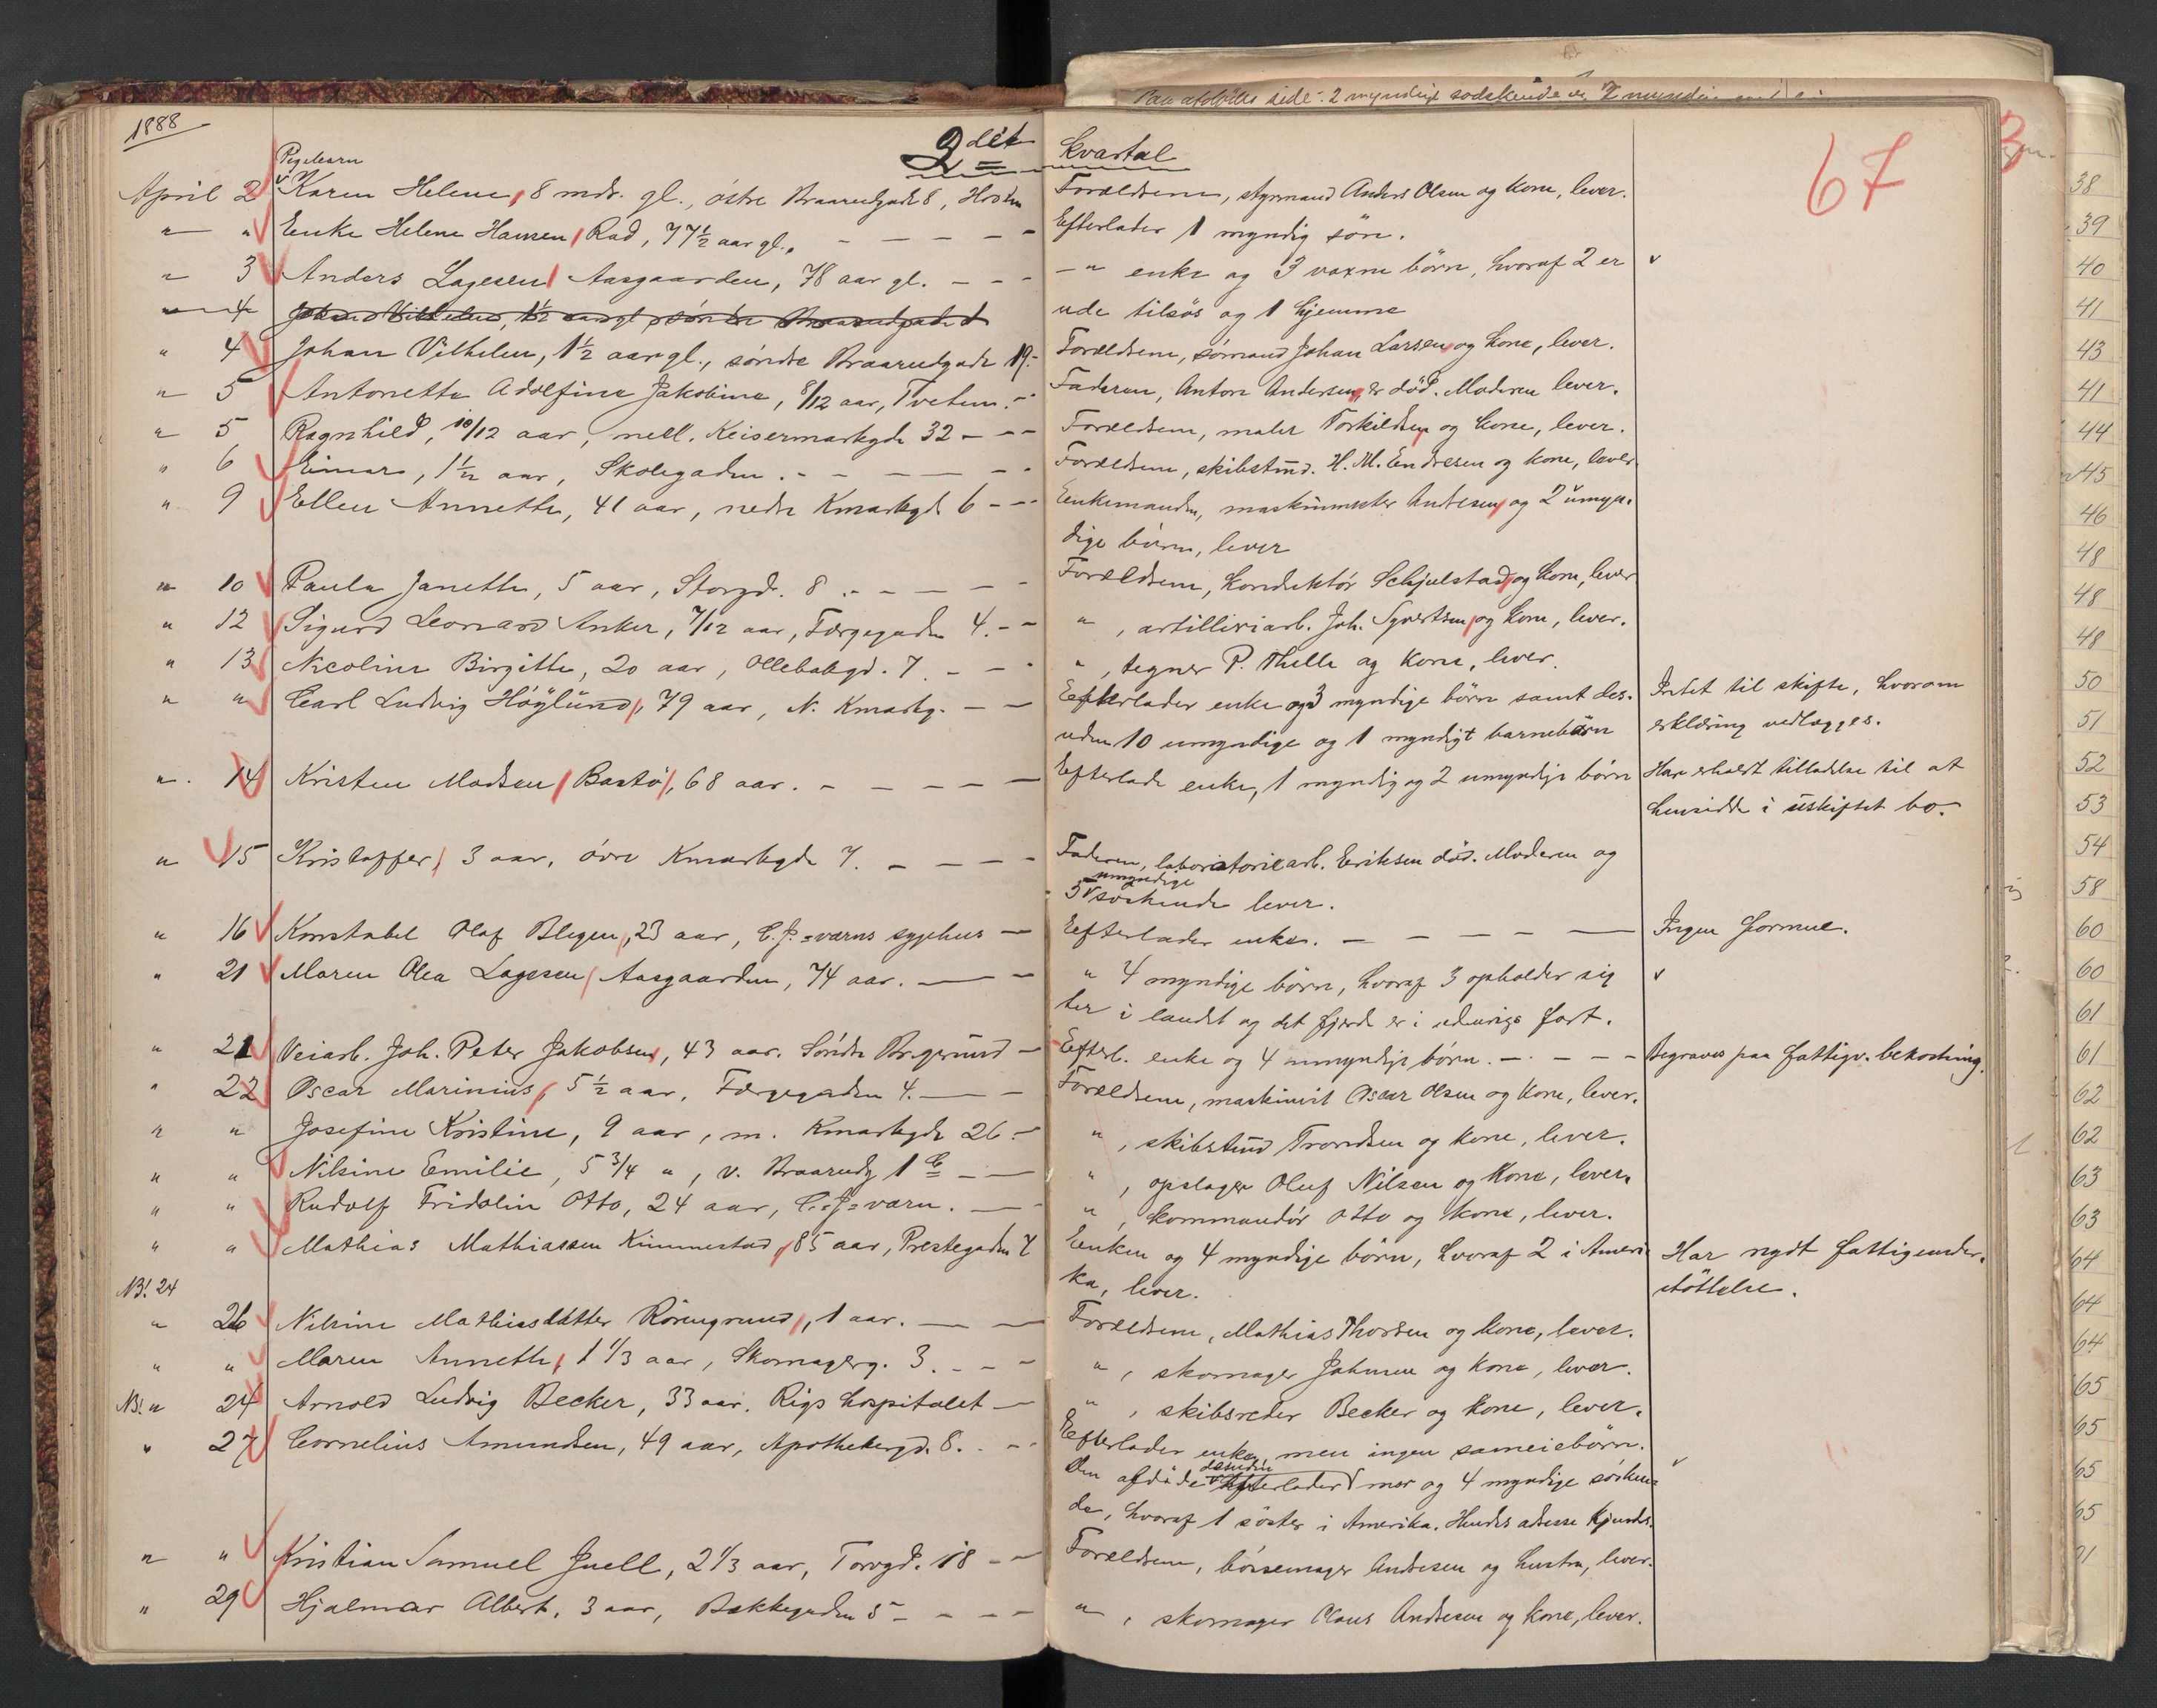 1888
2det Kvartal
67
Pigebarn
April 2 Karen Helene, 8 mdr. gl., østre Braarudgade 8, Horten Forældrene, styrmand Anders Olsen og kone, lever.
" " Enke Helene Hansen, Rad, 77 1/2 aar gl., - - - - - Efterlader 1 myndig søn.
" 3 Anders Lagesen, Aasgaarden, 78 aar gl. - - - - " enke og 3 voxne børn, hvoraf 2 er v
" 4 Johan Vilhelm, 1 1/2 aar gl., søndre Braarudgade ude tilsøs og 1 hjemme
" 4 Johan Vilhelm, 1 1/2 aar gl., søndre Braarudgade 19. - Forældrene, sømand Johan Larsen og kone, lever.
" 5 Antonette Adolfine Jakobine, 8/12 aar, Tveten. - Faderen, Anton Andersen, er død. Moderen lever.
" 5 Ragnhild, 10/12 aar, mell. Keisermarkgde 32 - - - Forældrene, maler Torkildsen og kone, lever.
" 6 Einar, 1 1/2 aar, Skolegaden. - - - - - Forældrene, skibstmd. H. M. Endresen og kone, lever.
" 9 Ellen Annette, 41 aar, nedre Kmarkgd. 6 - - - Enkemanden, maskinmester Andresen, og 2 umyn-
dige børn, lever
" 10 Paula Janette, 5 aar, Storgd. 8. - - - - - Forældrene, konduktør Schjelstad og kone, lever
" 12 Sigurd Leonard Anker, 7/12 aar, Færgegaden 4. - - " , artilleriarb. Joh. Syvertsen og kone, lever.
" 13 Nicoline Birgitte, 20 aar, Ollebakgd. 7. - - - " , tegner P. Thelle og kone, lever.
" " Carl Ludvig Höylund, 79 aar, N. Kmarkg. - - Efterlader enke og 3 myndige børn samt des- Intet til skifte, hvorom
uden 10 umyndige og 1 myndigt barnebørn erklæring vedlægges.
" 14 Kristen Madsen, Bastø, 68 aar. - - - - - Efterlader enke, 1 myndig og 2 umyndige børn Har erholdt tilladelse til at
hensidde i uskiftet bo.
" 15 Kristoffer, 3 aar, øvre Kmarkgde 7. - - - - Faderen, laboratoriearb. Eriksen død. Moderen og
5 umyndige søskende lever.
" 16 Konstabel Olaf Blegen, 23 aar, C. J.-værns sygehus - Efterlader enke. - - - - - Ingen formue.
" 21 Maren Olea Lagesen, Aasgaarden, 74 aar. - - " 4 myndige børn, hvoraf 3 opholder sig v
her i landet og det fjerde er i udenrigs fart.
" 21 Veiarb. Joh. Peter Jakobsen, 43 aar. Søndre Br.grund - Efterl. enke og 4 umyndige børn. - - - - Begraves paa fattigv. bekostning.
" 22 Oscar Marinius, 5 1/2 aar, Færgegaden 4. - - Forældrene, maskinist Oscar Olsen og kone, lever.
" " Josefine Kristine, 9 aar, m. Kmarkgde 26 - " , skibstmd Trondsen og kone, lever.
" " Nilsine Emilie, 5 3/4 ", v. Braarudg 1 C - - " , opslager Oluf Nilsen og kone, lever.
" " Rudolf Fridolin Otto, 24 aar, C.-J.-værn. - - " , kommandør Otto og kone, lever.
" " Mathias Mathiassen Kimmestad, 85 aar, Prestegaden 7 Enken og 4 myndige børn, hvoraf 2 i Ameri- Har nydt fattigunder-
NB! 24 ka, lever. støttelse.
" 26 Nilsine Mathiasdatter Rörengrund, 1 aar. - - Forældrene, Mathias Thorsen og kone, lever.
" " Maren Annette, 1 1/3 aar, Skomagerg. 3. - - - " , skomager Johnsen og kone, lever.
NB! " 24 Arnold Ludvig Becker, 33 aar. Rigshospitalet - " , skibsreder Becker og kone, lever.
" 27 Cornelius Amundsen, 49 aar, Apothekergd. 8. - - Efterlader enke, men ingen sameiebørn.
Den afdøde efterlader desuden mor og 4 myndige søsken- v
de, hvoraf 1 søster i Amerika. Hendes adresse kjendes.
" " Kristian Samuel Juell, 2 1/3 aar, Torvgd. 18 - - Forældrene, børsemager Andresen og hustru, lever.
" 29 Hjalmar Albert, 3 aar, Bakkegaden 5 - - - - " , skomager Klaus Andresen og kone, lever.
38
39
40
41
43
41
44
45
46
48
48
48
50
51
52
53
54
58
60
60
61
61
62
62
63
63
64
64
64
65
65
65
65